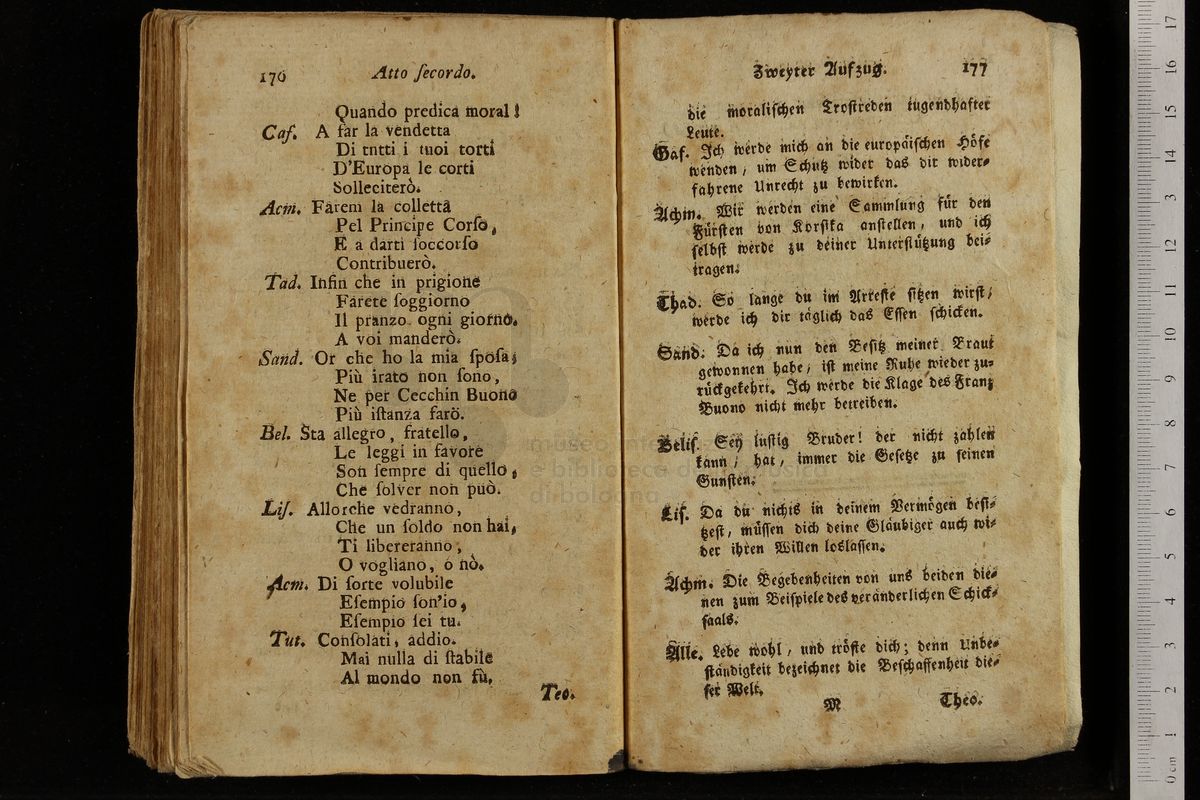 176 Atto ſecordo.
Quando predica moral!
Caſ. A far la vendetta
Di tntti i tuoi torti
D'Europa le corti
Solleciterò.
Acm. Farem la colletta
Pel Principe Corſo,
E a darti ſoccorſo
Contribuerò.
Tad. Infin che in prigione
Farete ſoggiorno
Il pranzo ogni giorno.
A voi manderò.
Sand. Or che ho la mia ſpoſa;
Più irato non ſono,
Ne per Cecchin Buono
Più iſtanza farò.
Bel. Sta allegro, fratello,
Le leggi in favore
Son ſempre di quello,
Che ſolver non può.
Liſ. Allorche vedranno,
Che un ſoldo non hai,
Ti libereranno,
O vogliano, o nò.
Acm. Di ſorte volubile
Eſempio ſon'io,
Eſempio ſei tu.
Tut. Conſolati, addio.
Mai nulla di ſtabile
Al mondo non fù.
Teo.
Zweyter Aufzug. 177
die moraliſchen Troſtreden tugendhafter
Leute.
Gaf. Ich werde mich an die europäiſchen Höfe
wenden, um Schutz wider das dir wider-
fahrene Unrecht zu bewirken.
Achm. Wir werden eine Sammlung für den
Fürſten von Korſika anſtellen, und ich
ſelbſt werde zu deiner Unterſtützung bei-
tragen.
Thad. So lange du im Arreſte ſitzen wirſt,
werde ich dir täglich das Eſſen ſchicken.
Sand. Da ich nun den Beſitz meiner Braut
gewonnen habe, iſt meine Ruhe wieder zu-
rückgekehrt. Ich werde die Klage des Franz
Buono nicht mehr betreiben.
Beliſ. Sey luſtig Bruder! der nicht zahlen
kann, hat, immer die Geſetze zu ſeinen
Gunſten.
Liſ. Da du nichts in deinem Vermögen beſi-
tzeſt, müſſen dich deine Gläubiger auch wi-
der ihren Willen loslaſſen.
Achm. Die Begebenheiten von uns beiden die-
nen zum Beiſpiele des veränderlichen Schick-
ſaals.
Alle. Lebe wohl, und tröſte dich; denn Unbe-
ſtändigkeit bezeichnet die Beſchaffenheit die-
ſer Welt.
M Theo.